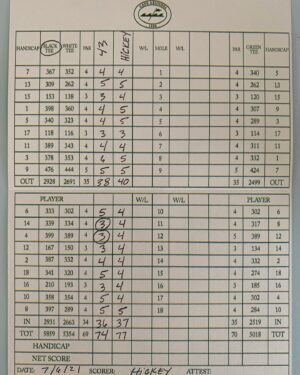 HANDICAP BLACK TEE WHITE TEE PAR JB HICKEY W/L HOLE W/L PAR GREEN TEE HANDICAP
7 367 352 4 4 4 1 4 340 5
13 309 262 4 5 5 2 4 262 13
15 153 138 3 3 4 3 3 120 15
1 398 360 4 4 5 4 4 307 9
5 340 323 4 4 5 5 4 289 3
17 118 116 3 3 3 6 3 114 17
11 389 343 4 4 4 7 4 311 11
3 378 353 4 6 5 8 4 332 1
9 476 444 5 5 5 9 5 424 7
OUT 2928 2691 35 38 40 35 2499 OUT
PLAYER W/L W/L PLAYER
6 333 302 4 5 4 10 4 302 6
14 339 334 4 3 4 11 4 317 8
4 399 389 4 3 4 12 5 389 12
12 167 150 3 3 4 13 3 134 14
2 387 332 4 5 4 14 4 332 2
8 329 320 4 5 4 15 4 274 18
16 210 193 3 3 4 16 3 185 16
10 358 354 4 5 4 17 4 302 4
18 397 289 4 5 5 18 4 284 10
IN 2931 2663 34 36 37 35 2519 IN
TOT 5859 5354 69 74 77 70 5018 TOT
HANDICAP
NET SCORE
DATE: 7/6/21 SCORER: HICKEY ATTEST: